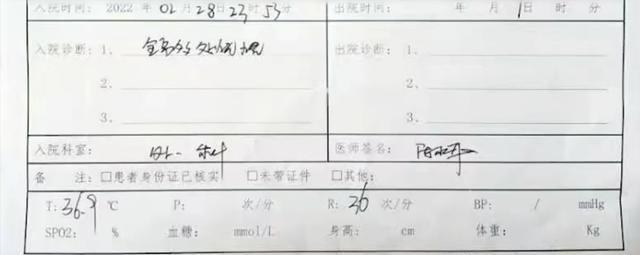 入院时间: 2022 年 02 月 28 日 23 时 53 分 出院时间: 年 月 日 时 分
入院诊断: 1、全身多处 出院诊断: 1、
2、 2、
3、 3、
入院科室: 外一科 医师签名:
备 注: □患者身份证已核实 □未带证件 □其他:
T: 36.9 ℃ P: 次/分 R: 36 次/分 BP: / mmHg
SPO2: % 血糖: mmol/L 身高: cm 体重: Kg